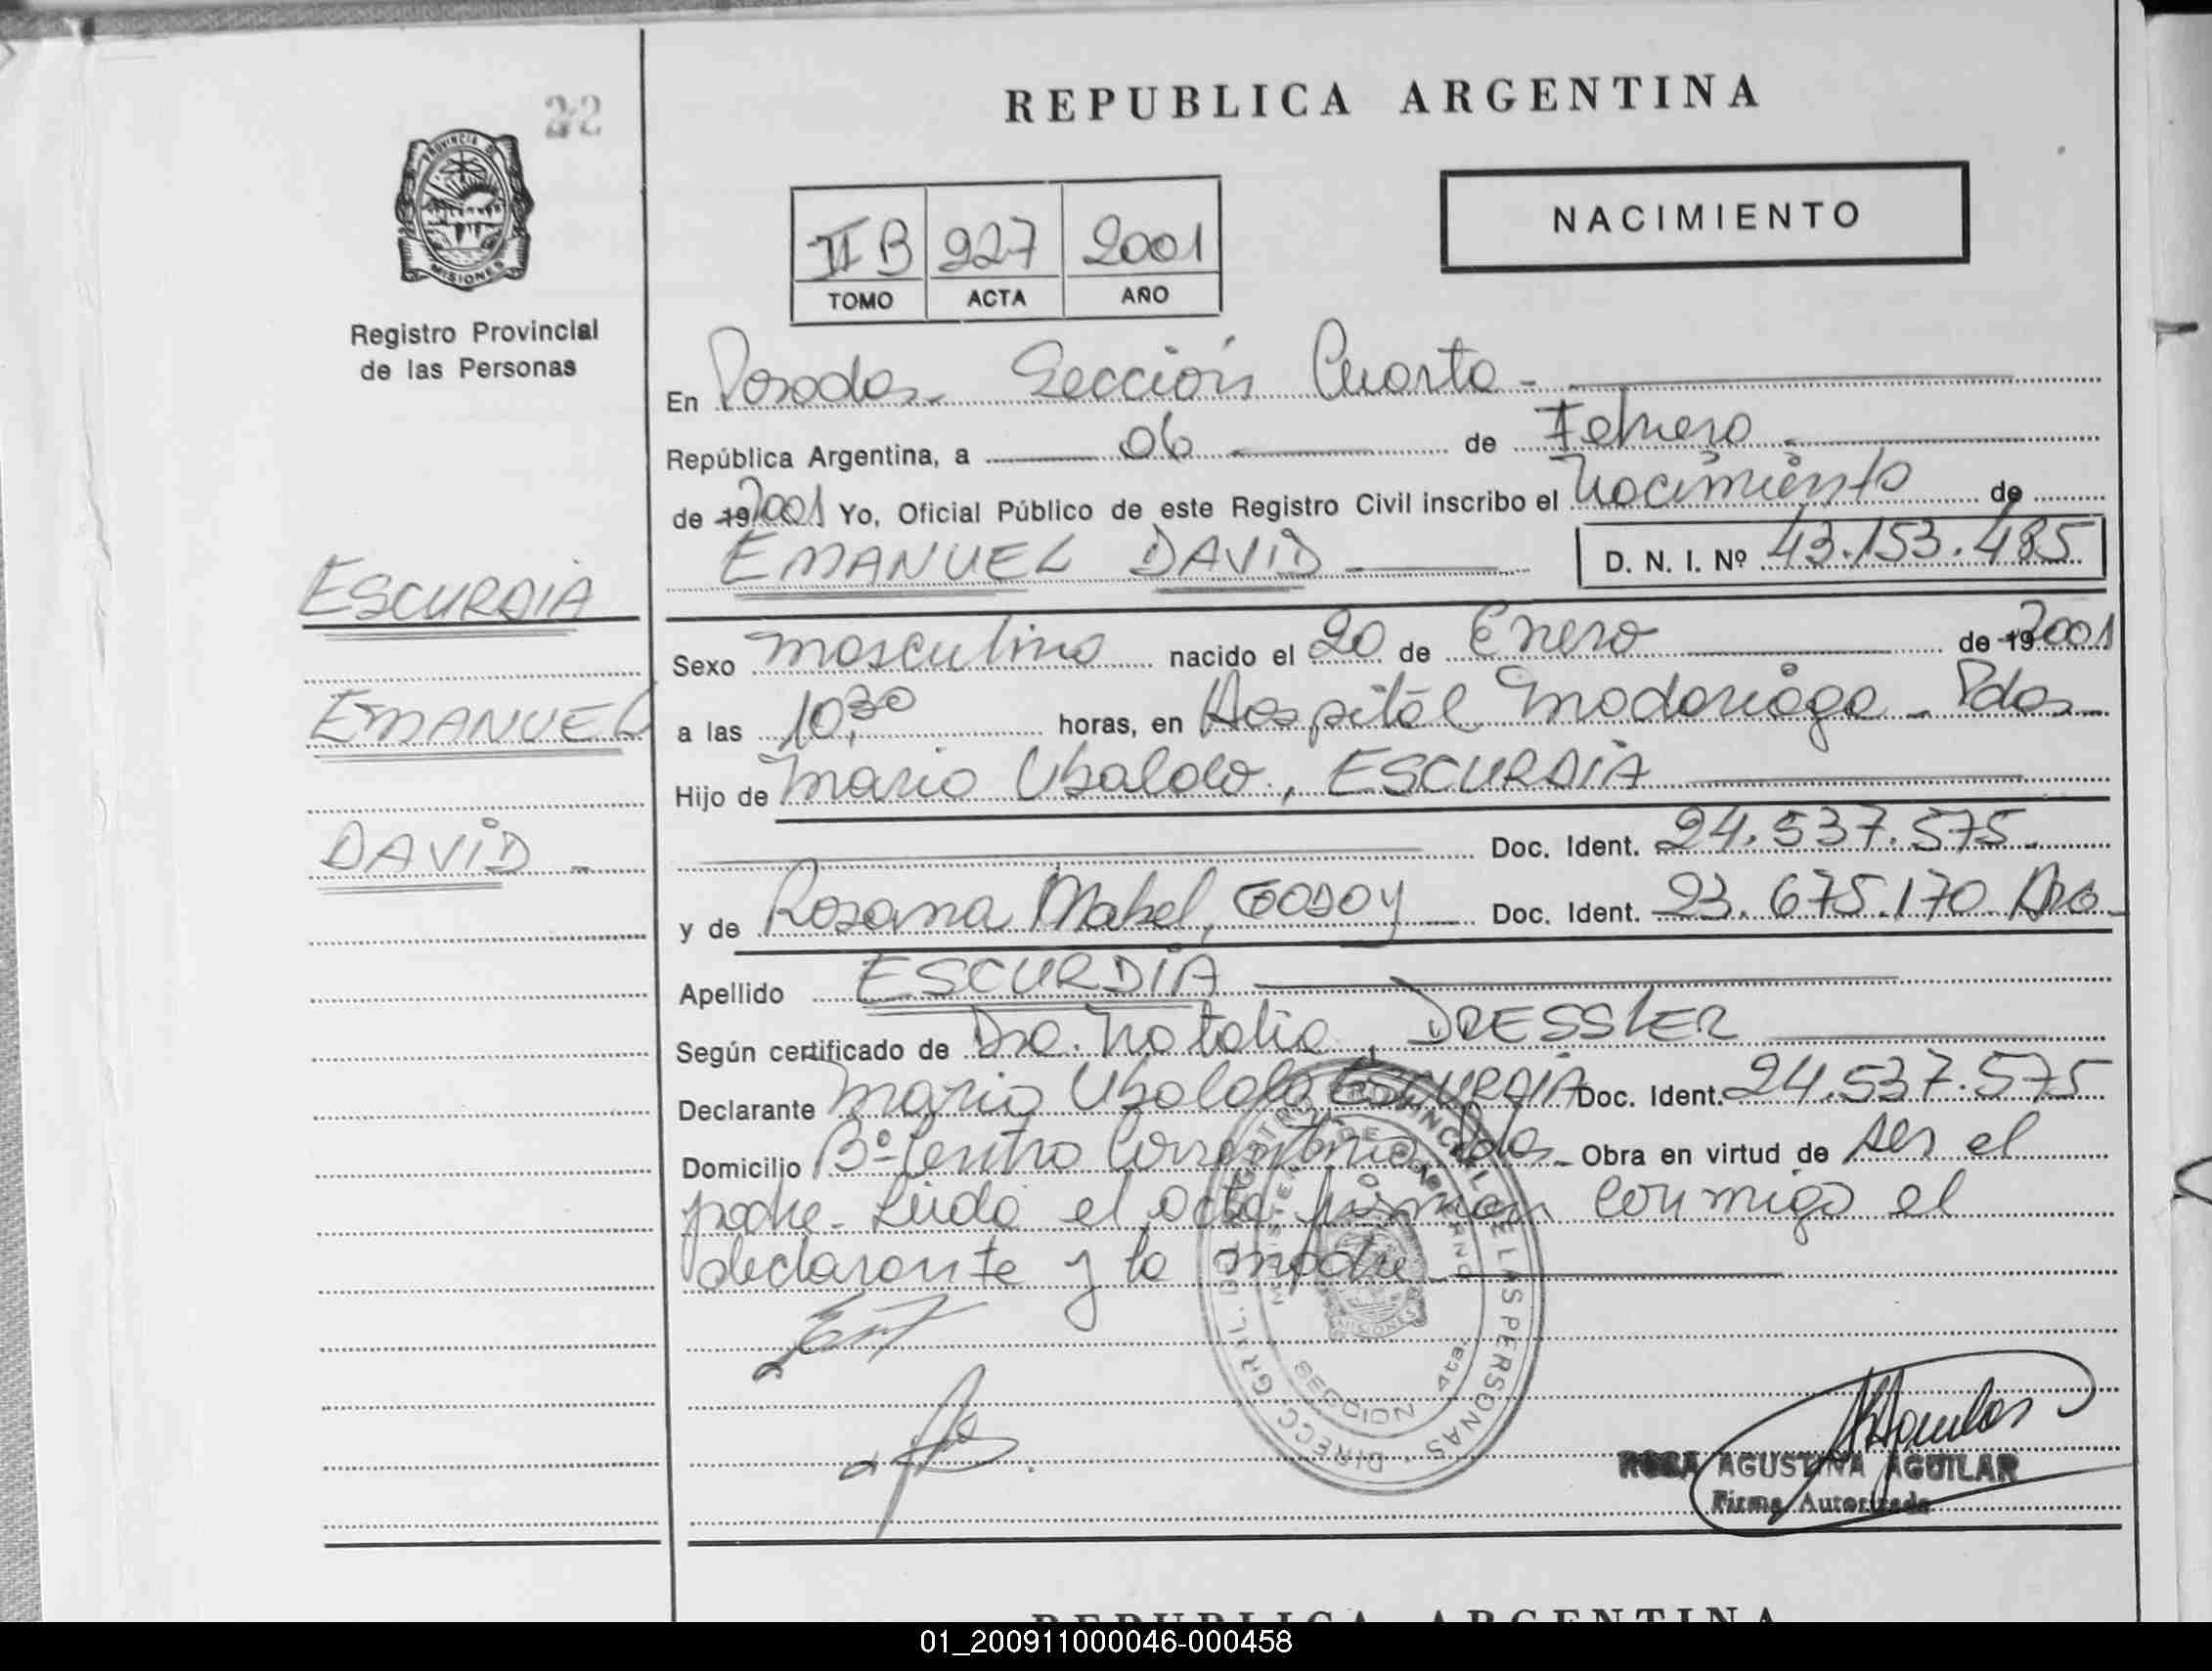 22
PROVINCIA D
MISIONES
Registro Provincial
de las Personas
ESCURDIA
EMANUEL
DAVID -
REPUBLICA ARGENTINA
NACIMIENTO
II B 227 2001
TOMO ACTA AÑO
En Posadas - Sección Cuarta -
República Argentina, a 06 - de Febrero -
de 19 2001 Yo, Oficial Público de este Registro Civil inscribo el Nacimiento de
EMANUEL DAVID - D. N. I. Nº 43.153.485
Sexo masculino nacido el 20 de Enero de 19 2001
a las 10,30 horas, en Hospital Madariaga - Pdas -
Hijo de Mario Ubaldo, ESCURDIA
Doc. Ident. 24.537.575 -
y de Rosana Mabel, GODOY Doc. Ident. 23.675.170 Arg -
Apellido ESCURDIA
Según certificado de Dra. Natalia, DRESSLER
Declarante Mario Ubaldo ESCURDIA Doc. Ident. 24.537.575
Domicilio Bº Centro Correntino Pdas - Obra en virtud de ser el
padre - Leída el acta firman conmigo el
declarante y la madre
DIRECC. GRAL. DEL REGISTRO PROVINCIAL DE LAS PERSONAS
MINISTERIO DE GOBIERNO
MISIONES
SECCION 4ta.
ROSA AGUSTINA AGUILAR
Firma Autorizada
REPUBLICA ARGENTINA
01_200911000046-000458